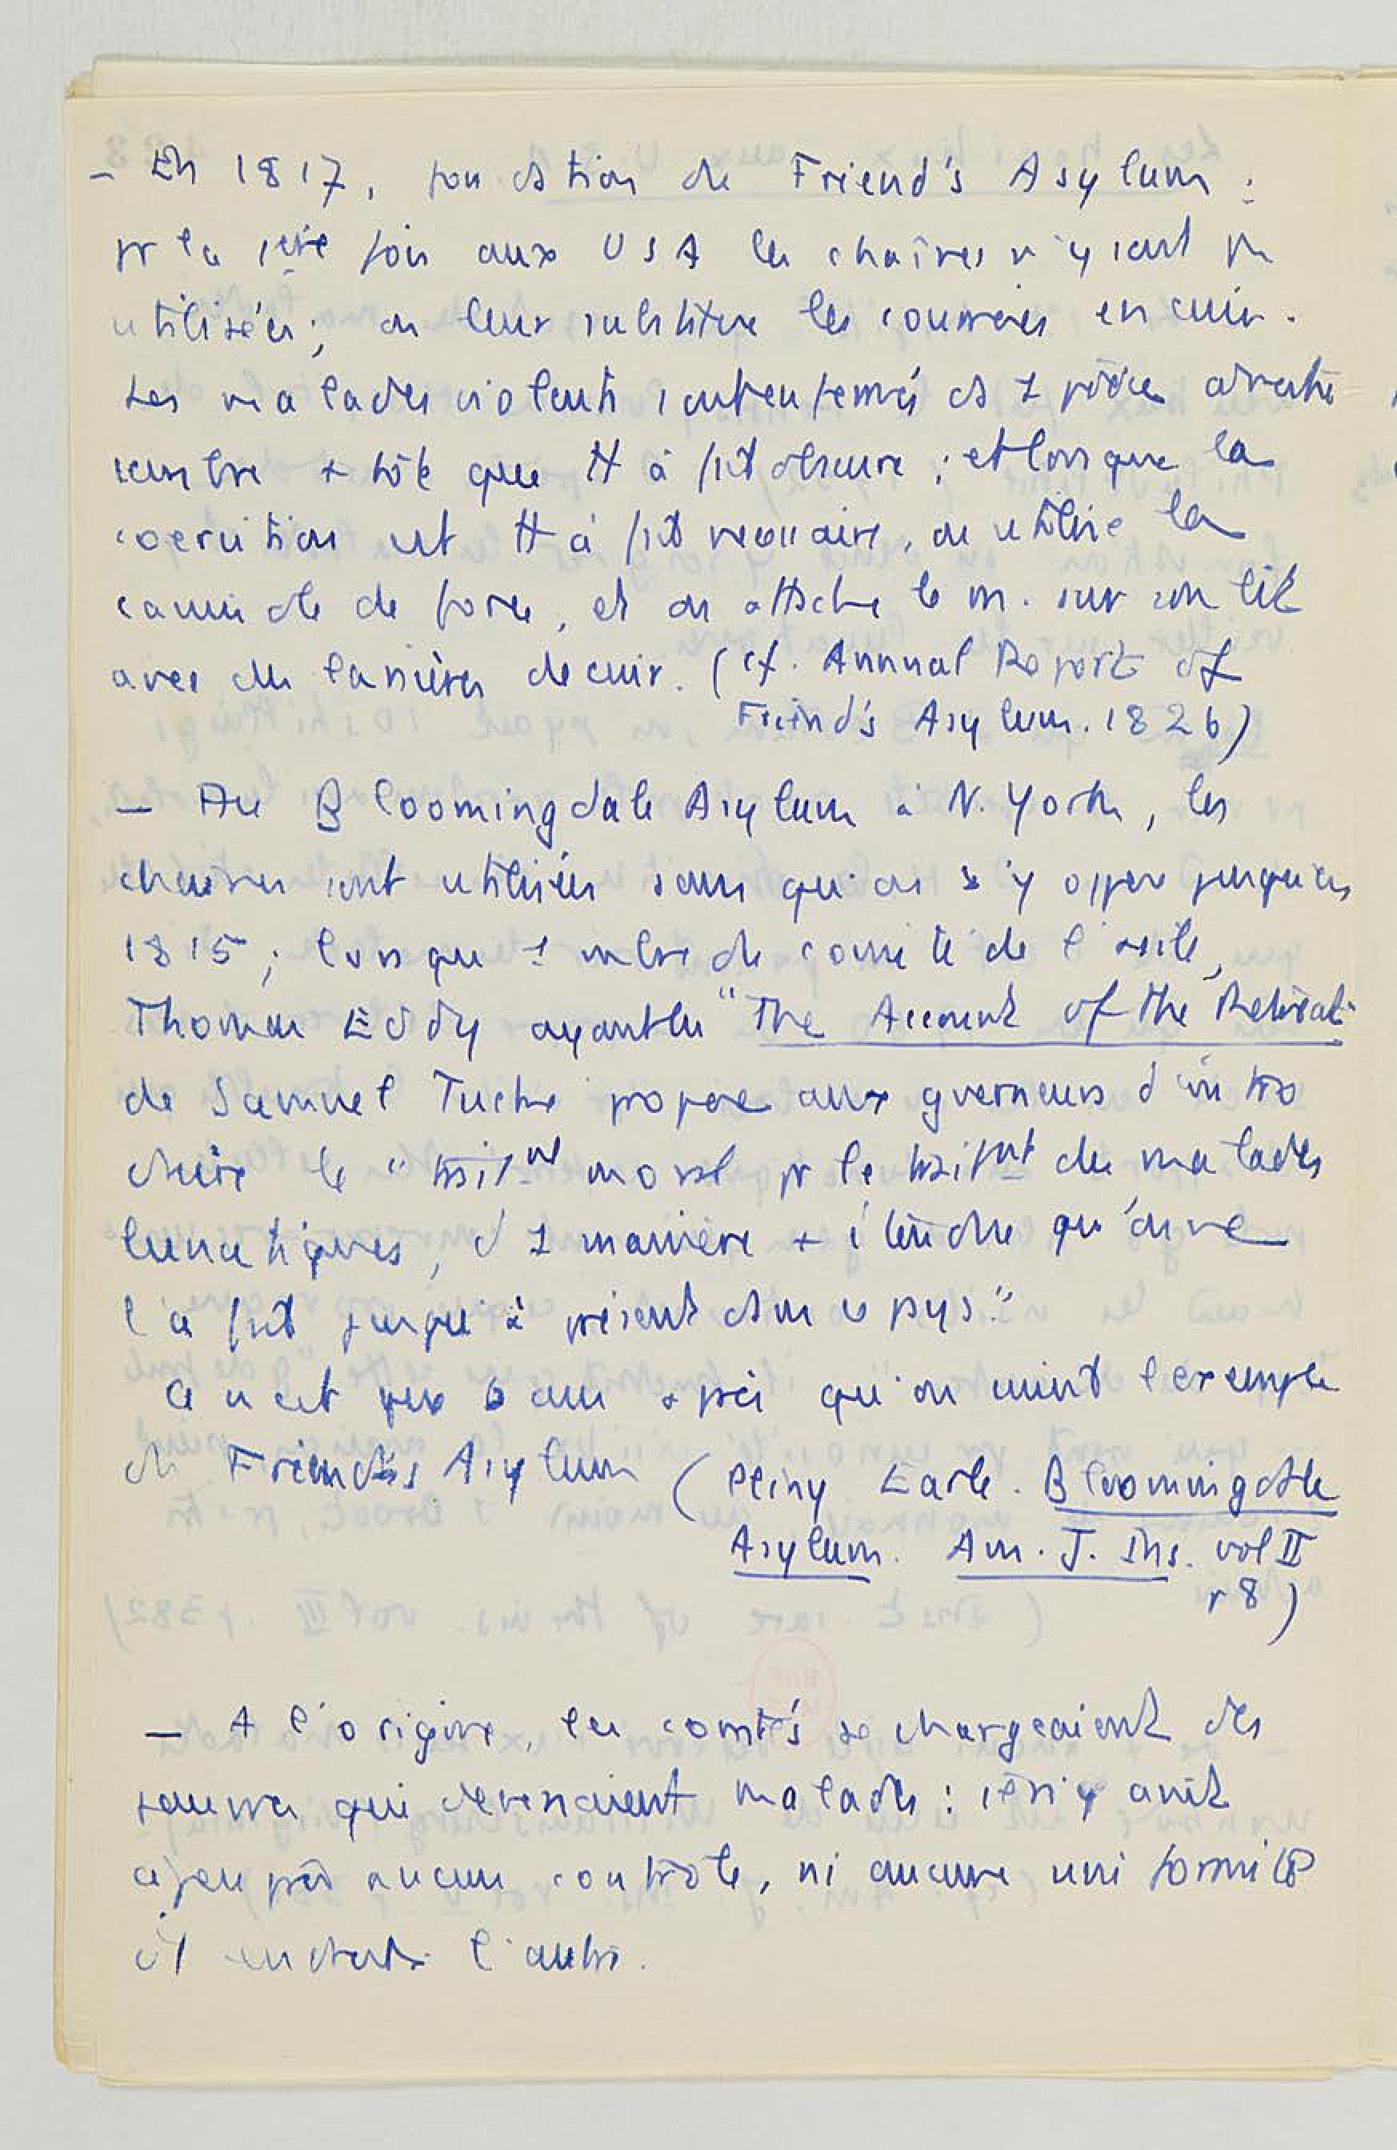 - En 1817, fondation de Friend's Asylum :
pr la 1ère fois aux USA les chaînes n'y sont pas
utilisées ; on leur substitue les courroies en cuir.
Les malades violents sont enfermés ds 1 pièce
sombre + tôt que tt à fait obscure ; et lorsque la
coercition est tt à fait nécessaire, on utilise la
camisole de force, et on attache le m. sur son lit
avec des lanières de cuir. (cf. Annual Report of
Friend's Asylum. 1826)
- Au Bloomingdale Asylum à N. York, les
chaînes sont utilisées sans qu'on s'y oppose jusqu'en
1815 ; lorsque 1 mbre du comité de l'asile,
Thomas Eddy ayant lu "The Account of the Retreat"
de Samuel Tucke propose aux gverneurs d'intro
duire le "traitmt moral pr le traitmt des malades
lunatiques, d 1 manière + étendue qu'on ne
l'a fait jusqu'à présent dans ce pys."
Ce n'est que 6 ans après qu'on suivit l'exemple
du Friend's Asylum (Pliny Earle. Bloomingdale
Asylum. Am. J. Ins. vol II
p 8)
- A l'origine, les comtés se chargeaient des
pauvres qui devenaient malades : il n'y avait
à peu près aucun contrôle, ni aucune uniformité
d'1 à l'autre.